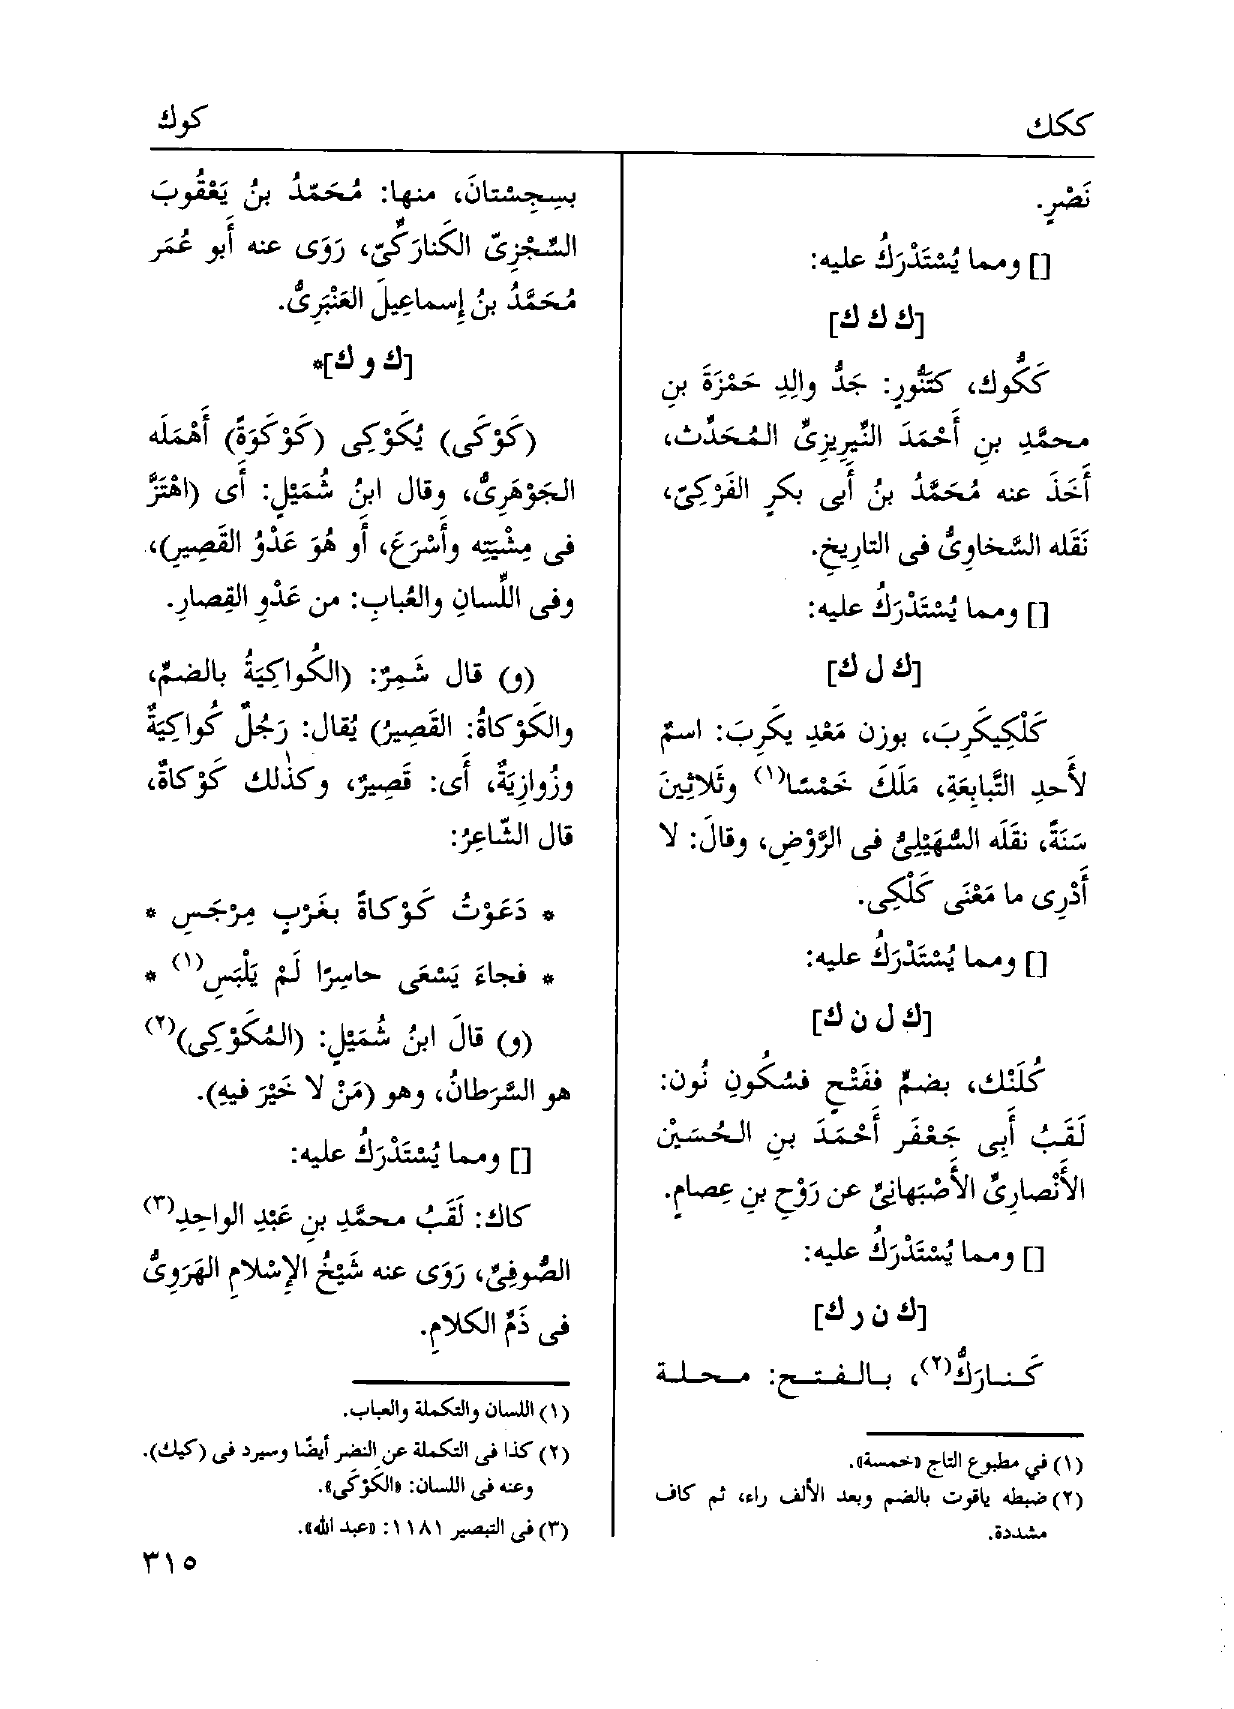 ككك
كوك
نَصْرٍ.
[] ومما يُسْتَدْرَكُ عليه:
[ك ك ك]
كَكُّوك، كتَنُّورٍ: جَدُّ والِدِ حَمْزَةَ بنِ
محمَّدِ بنِ أَحْمَدَ النَّيرِيزِىِّ المُحَدِّث،
أَخَذَ عنه مُحَمَّدُ بنُ أَبى بكرٍ الفَرْكِىّ،
نَقَله السَّخاوِىُّ فى التاريخِ.
[] ومما يُسْتَدْرَكُ عليه:
[ك ل ك]
كَلْكِيكَرِبَ، بوزن مَعْدِ يكَرِبَ: اسمٌ
لأَحدِ التَّبابِعَةِ، مَلَكَ خَمْسًا(١) وثَلاثِينَ
سَنَةً، نقَلَه السُّهَيْلِىُّ فى الرَّوْضِ، وقالَ: لا
أَدْرِى ما مَعْنَى كَلْكِى.
[] ومما يُسْتَدْرَكُ عليه:
[ك ل ن ك]
كُلَنْك، بضمٍّ ففَتْحٍ فسُكُونِ نُون:
لَقَبُ أَبِى جَعْفَر أَحْمَدَ بنِ الحُسَيْن
الأَنْصارِىِّ الأَصْبَهانِىِّ عن رَوْحِ بنِ عِصامٍ.
[] ومما يُسْتَدْرَكُ عليه:
[ك ن ر ك]
كَنارَكُّ(٢)، بالفتح: محلة
(١) في مطبوع التاج «خمسة».
(٢) ضبطه ياقوت بالضم وبعد الألف راء، ثم كاف
مشددة.
بسِجِسْتانَ، منها: مُحَمّدُ بنُ يَعْقُوبَ
السِّجْزِىّ الكَنارَكِّىّ، رَوَى عنه أَبو عُمَر
مُحَمَّدُ بنُ إِسماعِيلَ العَنْبَرِىُّ.
[ك و ك]*
(كَوْكَى) يُكَوْكِى (كَوْكَوَةً) أَهْمَلَه
الجَوْهَرِىُّ، وقال ابنُ شُمَيْلٍ: أَى (اهْتَزَّ
فى مِشْيَتِه وأَسْرَعَ، أَو هُوَ عَدْوُ القَصِيرِ)،
وفى اللِّسانِ والعُبابِ: من عَدْوِ القِصارِ.
(و) قال شَمِرٌ: (الكُواكِيَةُ بالضمِّ،
والكَوْكاةُ: القَصِيرُ) يُقال: رَجُلٌ كُواكِيَةٌ
وزُوازِيَةٌ، أَى: قَصِيرٌ، وكذٰلك كَوْكاةٌ،
قال الشّاعِرُ:
* دَعَوْتُ كَوْكاةً بغَرْبٍ مِرْجَسِ *
* فجاءَ يَسْعَى حاسِرًا لَمْ يَلْبَسِ(١) *
(و) قالَ ابنُ شُمَيْلٍ: (المُكَوْكِى)(٢)
هو السَّرَطانُ، وهو (مَنْ لا خَيْرَ فيهِ).
[] ومما يُسْتَدْرَكُ عليه:
كاك: لَقَبُ محمَّدِ بنِ عَبْدِ الواحِدِ(٣)
الصُّوفِىِّ، رَوَى عنه شَيْخُ الإِسْلامِ الهَرَوِىُّ
فى ذَمِّ الكلامِ.
(١) اللسان والتكملة والعباب.
(٢) كذا فى التكملة عن النضر أيضًا وسيرد فى (كيك).
وعنه فى اللسان: «الكَوْكَى».
(٣) فى التبصير ١١٨١: «عبد الله».
٣١٥